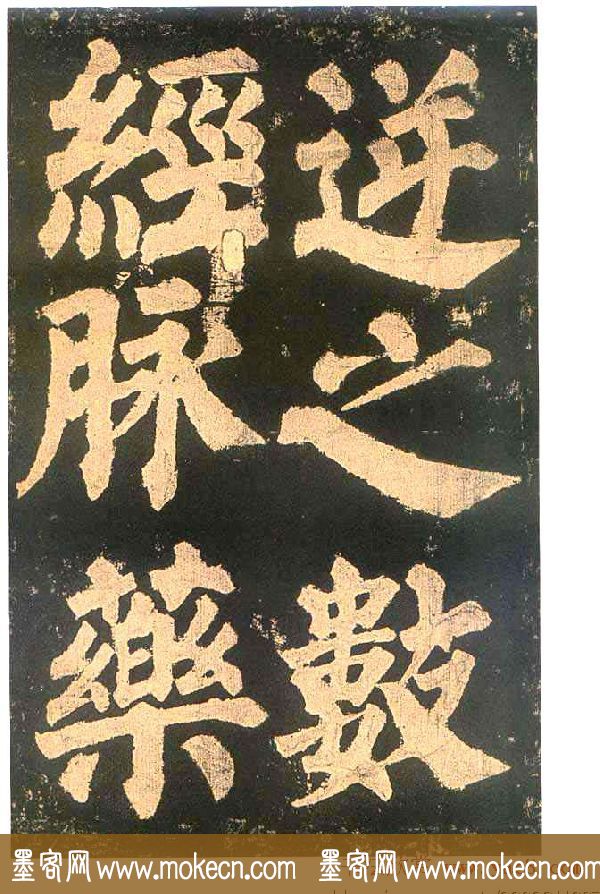 逆之數
經脉藥
墨客网 www.mokecn.com 墨客网 www.mokecn.com